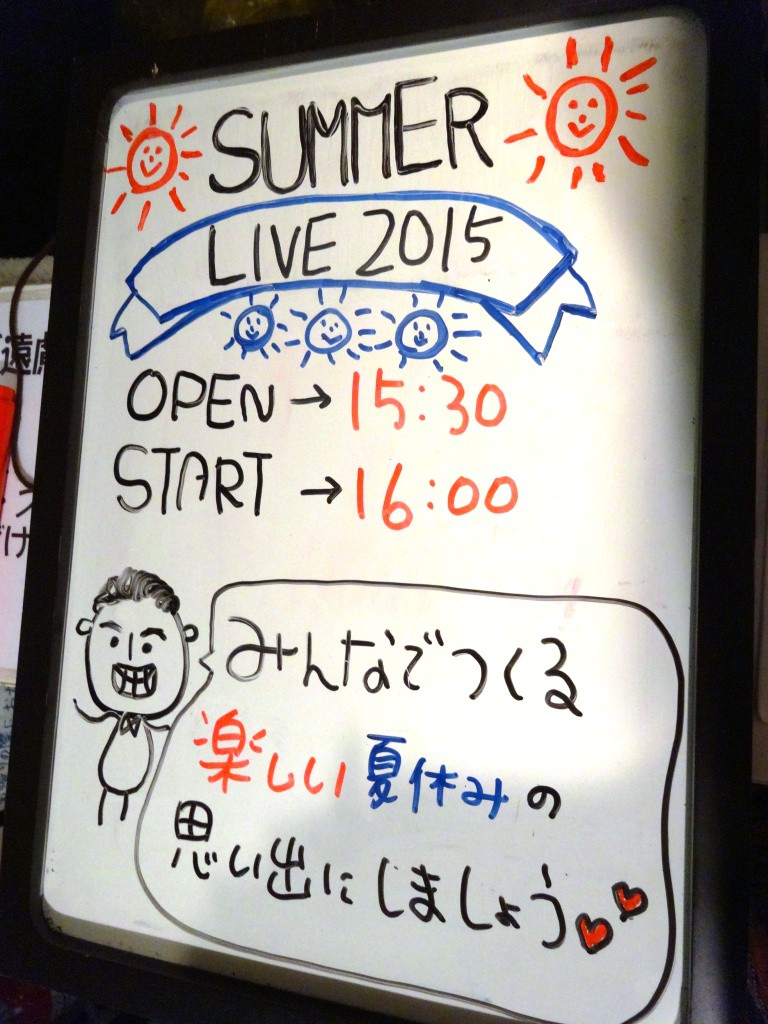 SUMMER
LIVE 2015
OPEN→15:30
START→16:00
みんなでつくる
楽しい夏休みの
思い出にしましょう